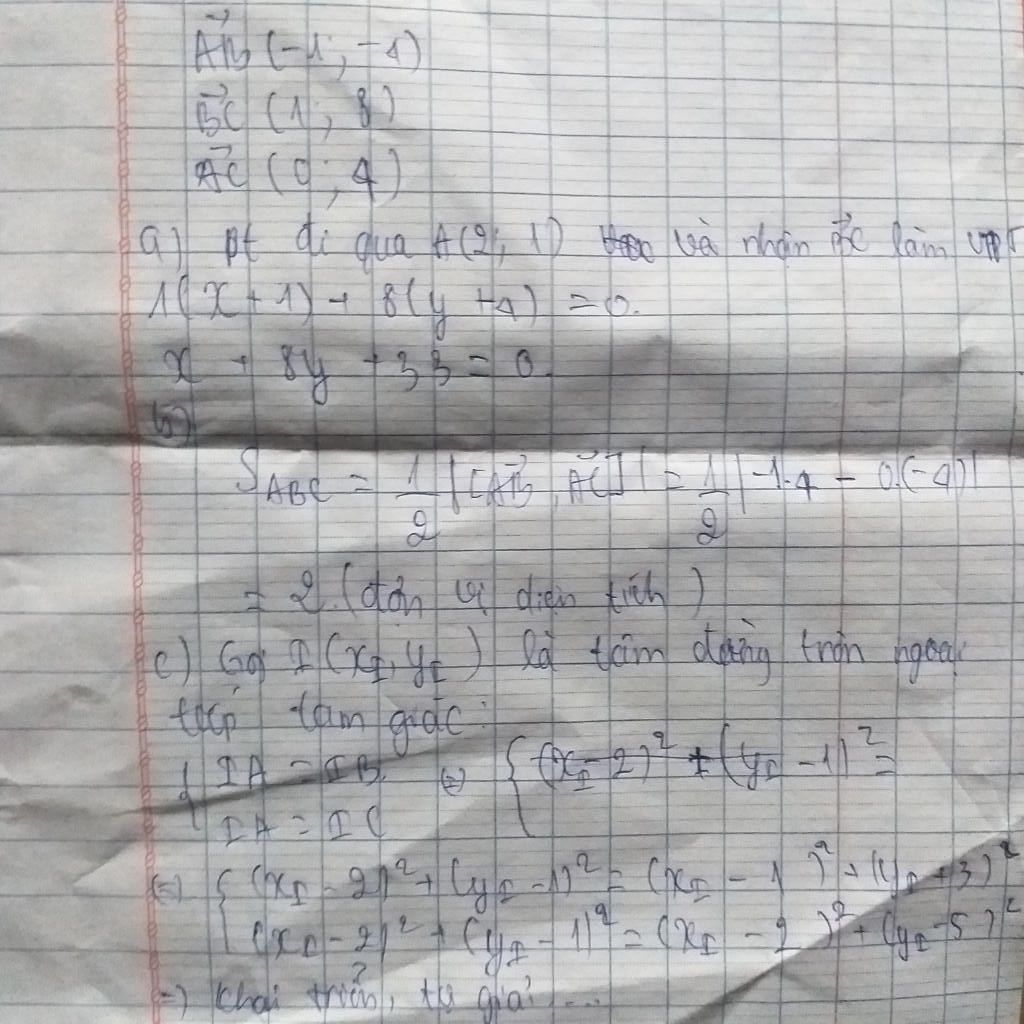 AB (-1; -4)
BC (1; 8)
AC (0; 4)
a) pt đi qua A(2; 1) và nhận AC làm
1(x + 1) + 8(y + 4) = 0.
x + 8y + 33 = 0.
b)
S_ABC = 1/2 |[AB, AC]| = 1/2 |-1.4 - 0.(-4)|
= 2. (đơn vị diện tích)
c) Gọi I(x_I, y_I) là tâm đường tròn ngoại
tiếp tam giác:
{ IA = IB, IA = IC (=) { (x_I - 2)² + (y_I - 1)² =
(=) { (x_I - 2)² + (y_I - 1)² = (x_I - 1)² + (y_I + 3)²
(x_I - 2)² + (y_I - 1)² = (x_I - 2)² + (y_I - 5)²
=) khai triển, tự giải ...